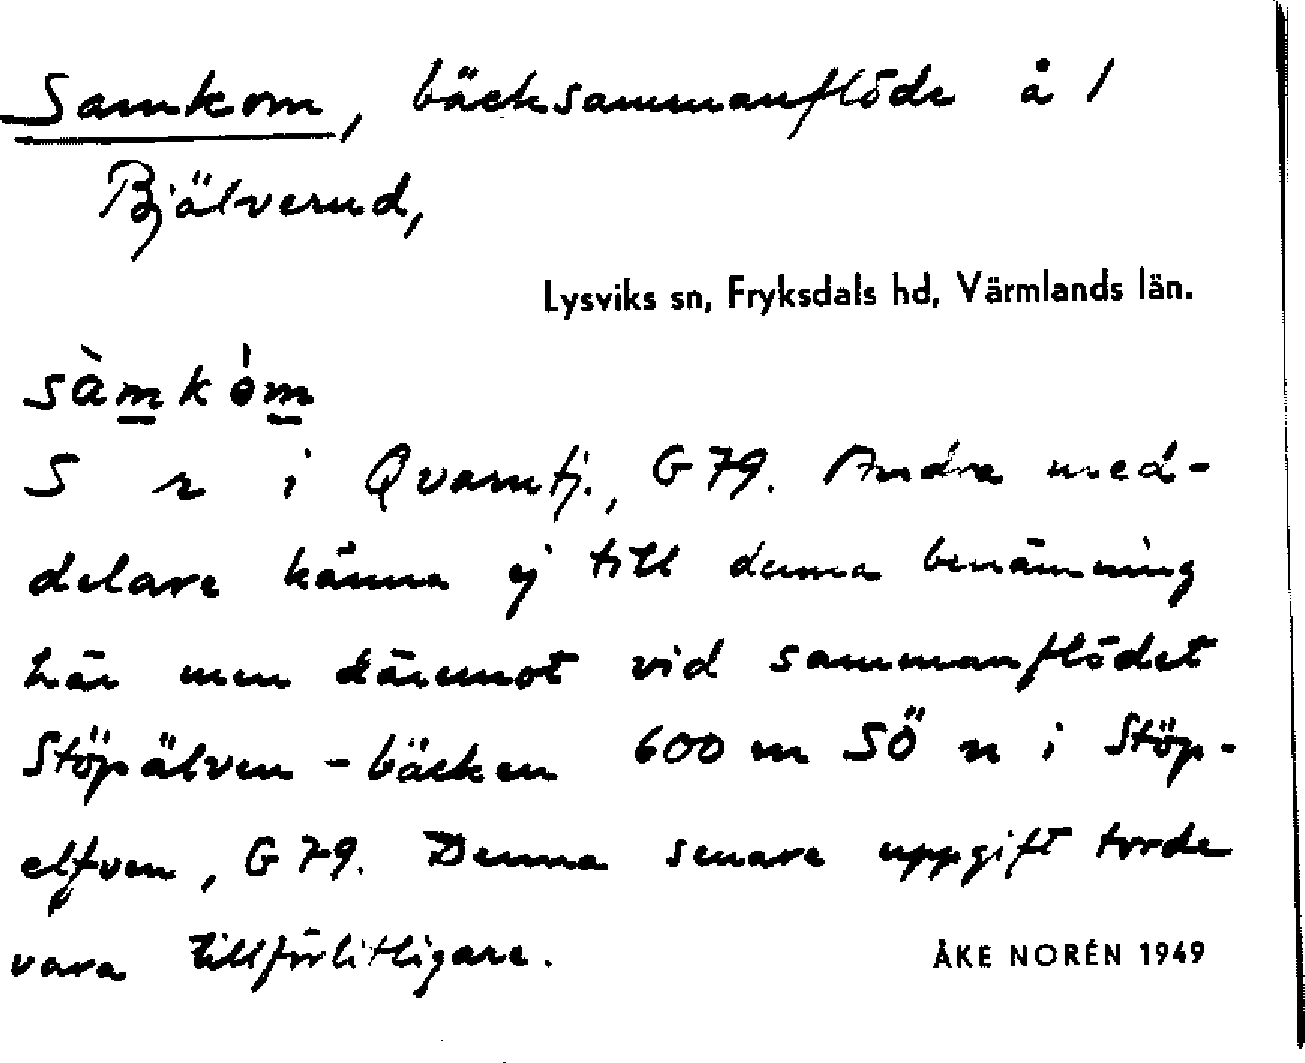 Samkom, bäcksammanflöde å 1
Bjälverud,
Lysviks sn, Fryksdals hd, Värmlands län.
sàmkòm
S r i Qvarntj., G 79. Andra med-
delare känna ej till denna benämning
här men däremot vid sammanflödet
Stöpälven - bäcken 600 m SÖ n i Stöp-
elfven, G 79. Denna senare uppgift torde
vara tillförlitligare.
ÅKE NORÉN 1949